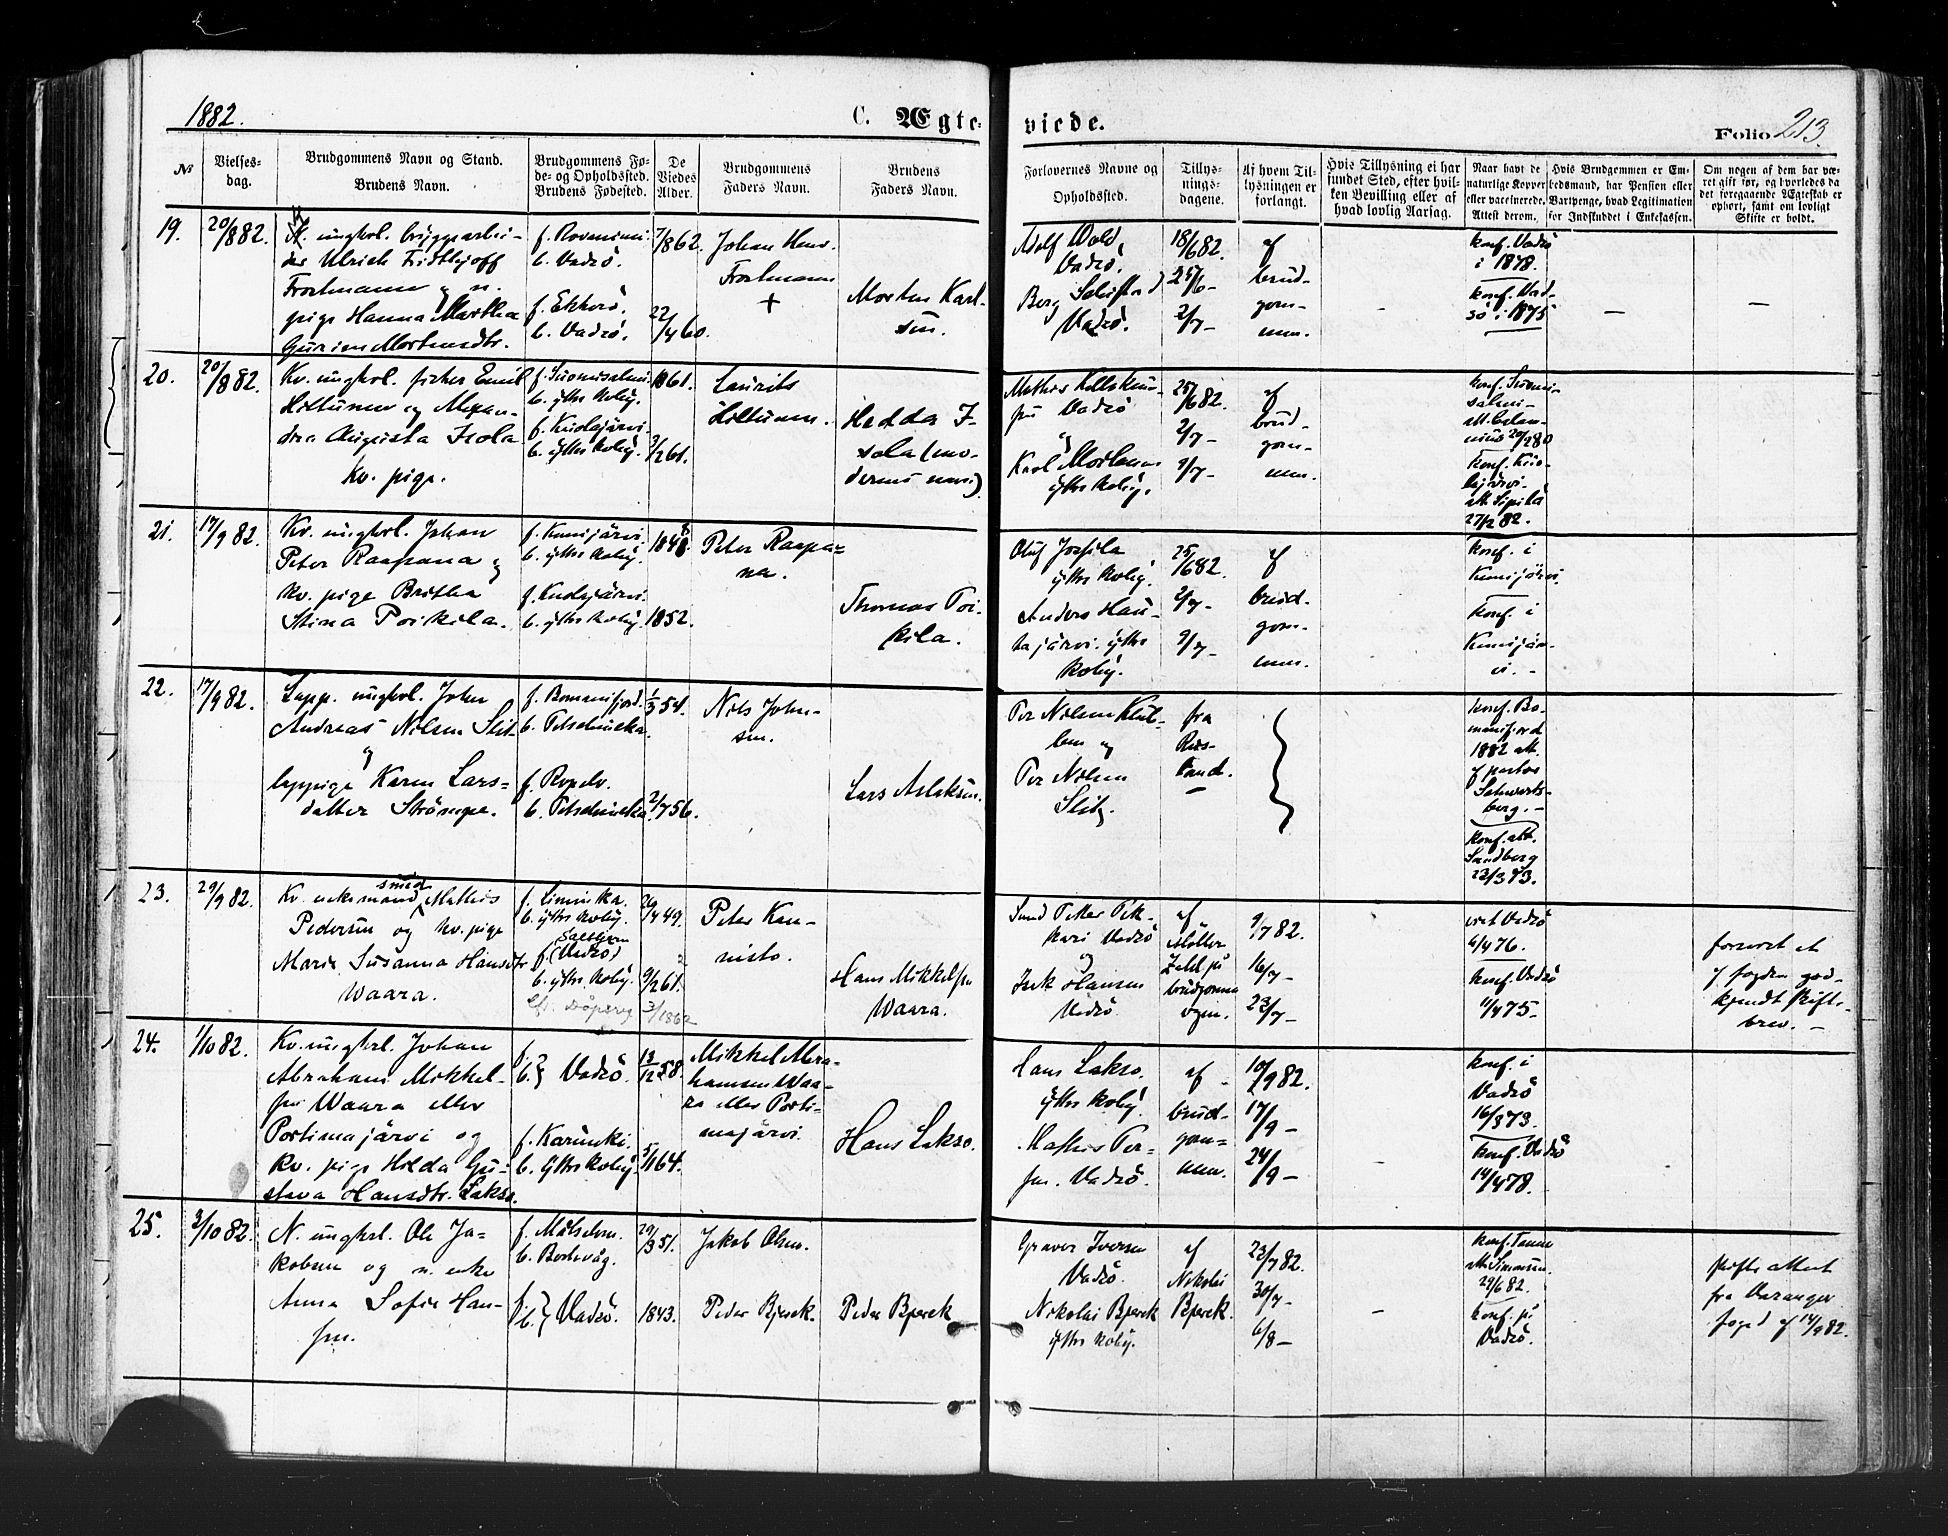 1882.
C. Ægte-
viede.
Folio 213.
№
Vielses-
dag.
Brudgommens Navn og Stand.
Brudens Navn.
Brudgommens Fø-
de- og Opholdssted.
Brudens Fødested.
De
Viedes
Alder.
Brudgommens
Faders Navn.
Brudens
Faders Navn.
Forlovernes Navne og
Opholdssted.
Tillys-
nings-
dagene.
Af hvem Til-
lysningen er
forlangt.
Hvis Tillysning ei har
fundet Sted, efter hvil-
ken Bevilling eller af
hvad lovlig Aarsag.
Naar havt de
naturlige Kopper
eller vaccinerede.
Attest derom.
Hvis Brudgommen er Em-
bedsmand, har Pension eller
Vartpenge, hvad Legitimation
for Indskuddet i Enkekassen.
Om nogen af dem har væ-
ret gift før, og hvorledes da
det foregaaende Ægteskab er
ophørt, samt om lovligt
Skifte er holdt.
19.
20/8 82.
ungkrl. bryggearbei-
der Ulrich Fridthjoff
Frostmann og n.
pige Hanna Martha
Gurine Mortensdtr.
f. Rovaniemi.
b. Vadsö.
f. Ekkerö.
b. Vadsö.
7/8 62.
22/4 60.
Johan Henr.
Frostmann
+
Morten Karl-
sen.
Adolf Wold
Vadsö.
Berg
Vadsö.
18/6 82.
25/6 -
2/7 -
af
brud-
gom-
men.
-
konf. Vadsö
i 1878.
konf. Vad-
sö i 1875
-
-
20.
20/8 82.
Kv. ungkrl. fisker Emil
Hiltunen og Alexan-
dra Augusta Isola
kv. pige.
f. Suomisalmi.
b. yttre Kvby.
f. Kuolajärvi.
b. yttre Kvby.
1861.
2/2 61.
Laurits
Hiltunen.
Hedda I-
sola (mo-
derens navn)
Mathis
Vadsö
Karl Mortensen
yttre Kvby.
25/6 82.
2/7 -
9/7 -
af
brud-
gom-
men.
konf. Suomi-
salmi -
konf. Kuo-
lajärvi -
att. Sipilä
27/2 82.
21.
17/9 82.
Kv. ungkrl. Johan
Peter Raapana og
kv. pige Britha
Stina Poikila.
f. Kemijärvi.
b. yttre Kvby.
f. Kuolajärvi.
b. yttre Kvby.
1848
1852.
Peter Raapa-
na.
Thomas Poi-
kila.
Oluf
yttre Kvby.
Anders Hau-
tajärvi. yttre
Kvby.
25/6 82.
2/7 -
9/7 -
af
brud-
gom-
men.
konf. i
Kemijärvi.
konf. i
Kemijär-
vi. -
22.
17/9 82.
Lapp. ungkrl. John
Andreas Nilsen Slit
og
lappige Karen Lars-
datter Strömpe.
f. Bomanifjord.
b. Petschincka.
f. Ropelv.
b. Petschincka.
1/3 54.
2/7 56.
Nils John-
sen.
Lars Aslaksen.
Per Nilsen
og
Per Nilsen
Slit.
fra
Rus-
land.
konf. Bo-
manifjord
1882 att.
af pastor
Schwarts-
berg. -
konf. att.
Sandberg
23/3 73.
23.
29/9 82.
Kv. enkemand smed Mathis
Pedersen og kv. pige
Maria Susanna Hansdtr
Waara.
f. Liminka.
b. yttre Kvby.
f. (Vadsö)
b. yttre Kvby.
26/4 49.
9/2 61.
3/1862
Peter Kan-
nisto.
Hans Mikkelsen
Waara.
Vadsö
og
Hansen
Vadsö.
af
9/7 82.
16/7 -
23/7 -
viet Vadsö
6/4 76.
konf. Vadsö
11/4 75.
foreviset et
af fogden god-
kjendt skifte-
brev. -
24.
1/10 82.
Kv. ungkrl. Johan
Abraham Mikkel-
sen Waara eller
Portimajärvi og
kv. pige Hilda Gu-
stava Hansdtr. Lakso.
f.
b. } Vadsö.
f. Karunki.
b. yttre Kvby.
13/12 58.
5/1 64.
Mikkel Abra-
hamsen Waa-
ra eller Porti-
majärvi.
Hans Lakso.
Hans Lakso.
yttre Kvby.
Mathis Per-
sen. Vadsö.
af
brud-
gom-
men.
10/9 82.
17/9 -
24/9 -
konf. i
Vadsö
16/3 73.
konf. Vadsö
14/4 78.
25.
3/10 82.
N. ungkrl. Ole Ja-
kobsen og n. enke
Anna Sofie Han-
sen.
f. Målselven.
b. Berlevåg.
f.
b. } Vadsö.
29/3 51.
1843.
Jakob Olsen.
Peder Bjerek.
Peder Bjerek
Iversen
Vadsö.
Nikolai Bjerek
yttre Kvby.
af
Nikolai
Bjerek.
23/7 82.
30/7 -
6/8 -
-
konf. Tanen
att. Simonsen.
29/6 82.
konf. på
Vadsö.
skifte attest
fra Varanger
foged af 14/9 82.